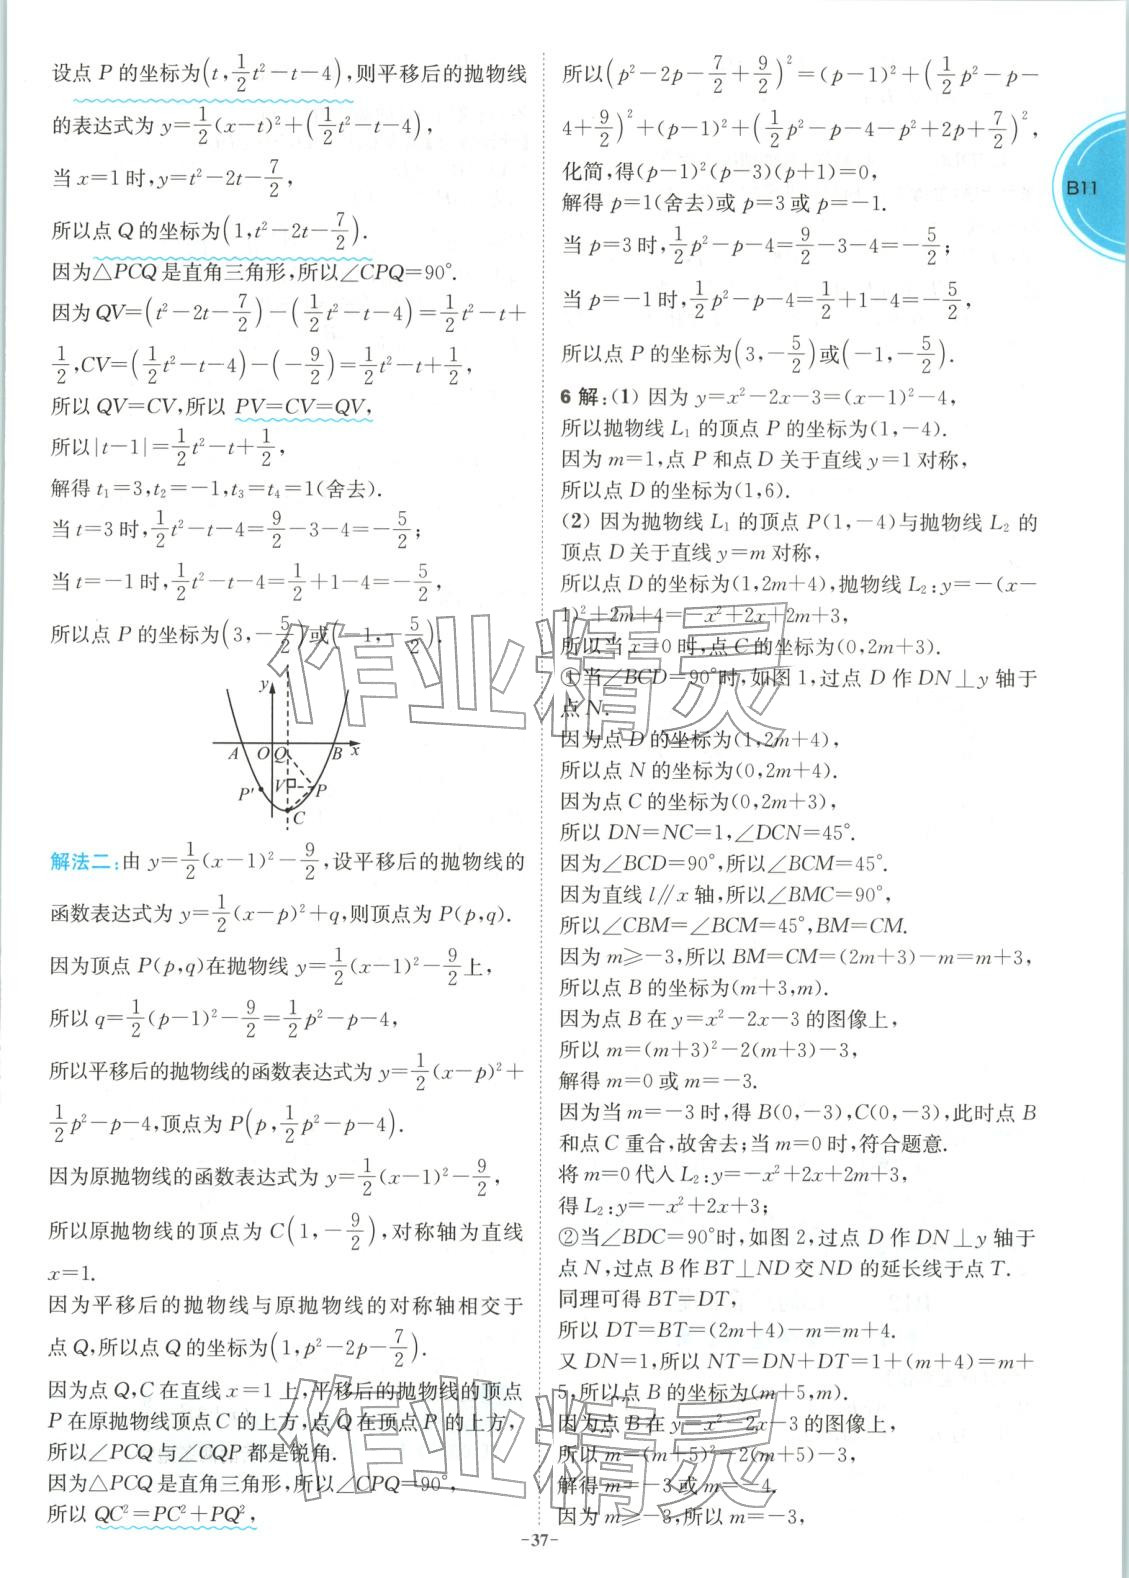 设点 P 的坐标为(t, 1/2 t²-t-4),则平移后的抛物线
的表达式为 y=1/2(x-t)²+(1/2 t²-t-4),
当 x=1 时,y=t²-2t-7/2,
所以点 Q 的坐标为(1,t²-2t-7/2).
因为△PCQ 是直角三角形,所以∠CPQ=90°.
因为 QV=(t²-2t-7/2)-(1/2 t²-t-4)=1/2 t²-t+
1/2,CV=(1/2 t²-t-4)-(-9/2)=1/2 t²-t+1/2,
所以 QV=CV,所以 PV=CV=QV,
所以|t-1|=1/2 t²-t+1/2,
解得 t₁=3,t₂=-1,t₃=t₄=1(舍去).
当 t=3 时,1/2 t²-t-4=9/2-3-4=-5/2;
当 t=-1 时,1/2 t²-t-4=1/2+1-4=-5/2,
所以点 P 的坐标为(3,-5/2)或(-1,-5/2).
y
A O Q B x
P' V P
C
解法二:由 y=1/2(x-1)²-9/2,设平移后的抛物线的
函数表达式为 y=1/2(x-p)²+q,则顶点为 P(p,q).
因为顶点 P(p,q)在抛物线 y=1/2(x-1)²-9/2上,
所以 q=1/2(p-1)²-9/2=1/2 p²-p-4,
所以平移后的抛物线的函数表达式为 y=1/2(x-p)²+
1/2 p²-p-4,顶点为 P(p,1/2 p²-p-4).
因为原抛物线的函数表达式为 y=1/2(x-1)²-9/2,
所以原抛物线的顶点为 C(1,-9/2),对称轴为直线
x=1.
因为平移后的抛物线与原抛物线的对称轴相交于
点 Q,所以点 Q 的坐标为(1,p²-2p-7/2).
因为点 Q,C 在直线 x=1 上,平移后的抛物线的顶点
P 在原抛物线顶点 C 的上方,点 Q 在顶点 P 的上方,
所以∠PCQ 与∠CQP 都是锐角.
因为△PCQ 是直角三角形,所以∠CPQ=90°,
所以 QC²=PC²+PQ²,
所以(p²-2p-7/2+9/2)²=(p-1)²+(1/2 p²-p-
4+9/2)²+(p-1)²+(1/2 p²-p-4-p²+2p+7/2)²,
化简,得(p-1)²(p-3)(p+1)=0,
解得 p=1(舍去)或 p=3 或 p=-1.
当 p=3 时,1/2 p²-p-4=9/2-3-4=-5/2;
当 p=-1 时,1/2 p²-p-4=1/2+1-4=-5/2,
所以点 P 的坐标为(3,-5/2)或(-1,-5/2).
6 解:(1) 因为 y=x²-2x-3=(x-1)²-4,
所以抛物线 L₁ 的顶点 P 的坐标为(1,-4).
因为 m=1,点 P 和点 D 关于直线 y=1 对称,
所以点 D 的坐标为(1,6).
(2) 因为抛物线 L₁ 的顶点 P(1,-4)与抛物线 L₂ 的
顶点 D 关于直线 y=m 对称,
所以点 D 的坐标为(1,2m+4),抛物线 L₂:y=-(x-
1)²+2m+4=-x²+2x+2m+3,
所以当 x=0 时,点 C 的坐标为(0,2m+3).
①当∠BCD=90°时,如图 1,过点 D 作 DN⊥y 轴于
点 N.
因为点 D 的坐标为(1,2m+4),
所以点 N 的坐标为(0,2m+4).
因为点 C 的坐标为(0,2m+3),
所以 DN=NC=1,∠DCN=45°.
因为∠BCD=90°,所以∠BCM=45°.
因为直线 l∥x 轴,所以∠BMC=90°,
所以∠CBM=∠BCM=45°,BM=CM.
因为 m≥-3,所以 BM=CM=(2m+3)-m=m+3,
所以点 B 的坐标为(m+3,m).
因为点 B 在 y=x²-2x-3 的图像上,
所以 m=(m+3)²-2(m+3)-3,
解得 m=0 或 m=-3.
因为当 m=-3 时,得 B(0,-3),C(0,-3),此时点 B
和点 C 重合,故舍去;当 m=0 时,符合题意.
将 m=0 代入 L₂:y=-x²+2x+2m+3,
得 L₂:y=-x²+2x+3;
②当∠BDC=90°时,如图 2,过点 D 作 DN⊥y 轴于
点 N,过点 B 作 BT⊥ND 交 ND 的延长线于点 T.
同理可得 BT=DT,
所以 DT=BT=(2m+4)-m=m+4.
又 DN=1,所以 NT=DN+DT=1+(m+4)=m+
5,所以点 B 的坐标为(m+5,m).
因为点 B 在 y=x²-2x-3 的图像上,
所以 m=(m+5)²-2(m+5)-3,
解得 m=-3 或 m=-4.
因为 m≥-3,所以 m=-3,
B11
-37-
作业精灵
作业精灵